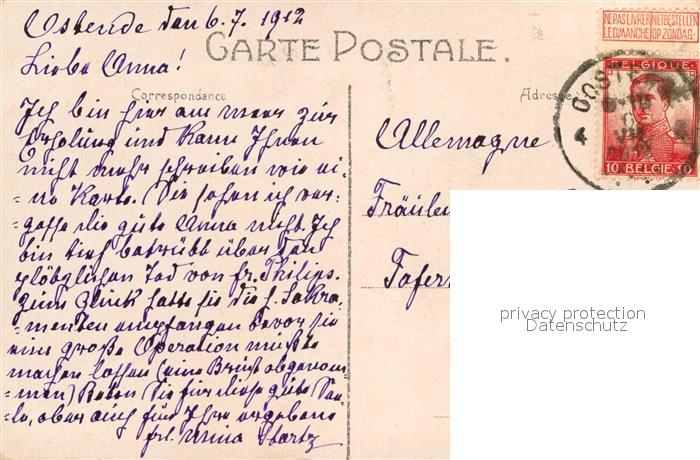 Ostende den 6.7. 1912
CARTE POSTALE.
Liebe Anna!
Correspondance
Adresse
NE PAS LIVRER NIET BESTELLEN
LE DIMANCHE OP ZONDAG.
BELGIQUE
10 BELGIË 10
OOST
Ich bin hier am meer zur
Erholung und kann Ihnen
nicht mehr schreiben wie ei-
=ne Karte. Sie sehen ich ver-
gesse die gute Anna nicht. Ich
bin tief betrübt über den
plötzlichen Tod von fr. Philips.
Zum Glück hatte sie die h. Sakra-
=menten empfangen bevor sie
eine große Operation mußte
machen lassen (eine Brust abgenom-
=men) Beten Sie für diese gute See-
=le, aber auch für Ihre ergebene
frl. Anna Startz
Allemagne
Fräulein
privacy protection
Datenschutz